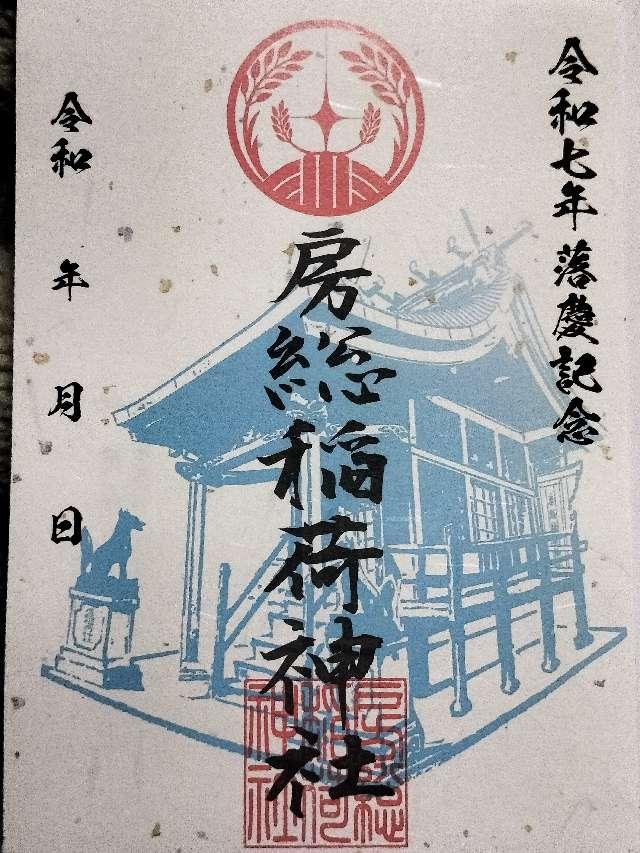 令和七年落慶記念
房総稲荷神社
令和 年 月 日
房総稲荷神社